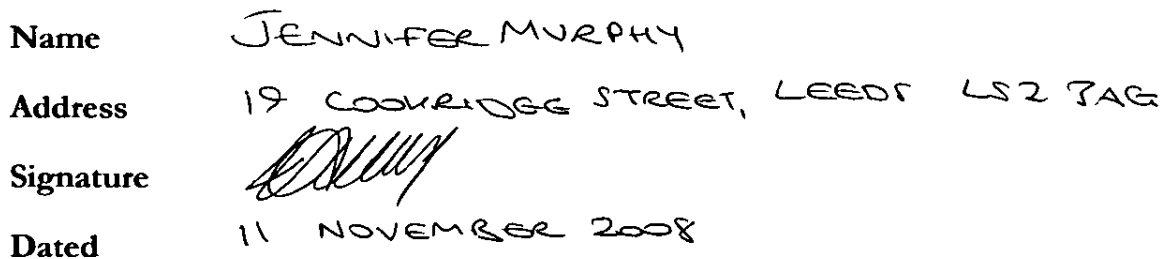 Name JENNIFER MURPHY
Address 19 COOKRIDGE STREET, LEEDS LS2 3AG
Signature
Dated 11 NOVEMBER 2008